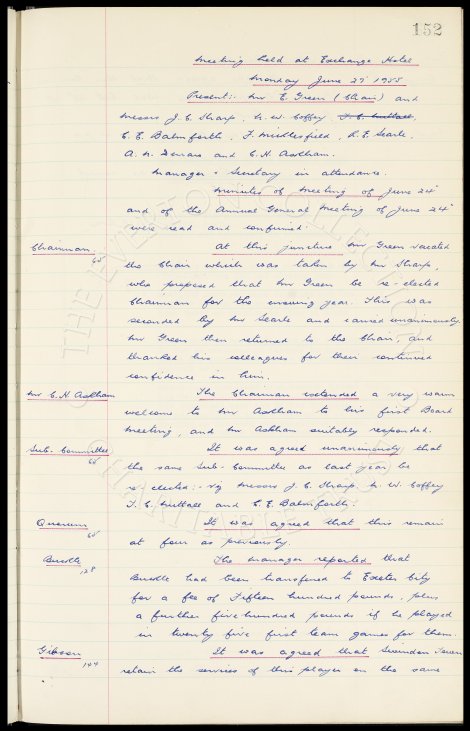 152
Meeting held at Exchange Hotel
Monday June 27 1955
Present:- Mr E. Green (Chair) and
Messrs J. C. Sharp, N. W. Coffey, T. C. Nuttall,
C. E. Balmforth, F. Micklesfield, R. F. Searle,
A. M. and C. H. Askham.
Manager & Secretary in attendance.
Minutes of Meeting of June 24
and of the Annual General Meeting of June 24
were read and confirmed.
Chairman At this juncture Mr Green vacated
65
the Chair which was taken by Mr Sharp,
who proposed that Mr Green be re-elected
Chairman for the ensuing year. This was
seconded by Mr Searle and carried unanimously.
Mr Green then returned to the Chair, and
thanked his colleagues for their continued
confidence in him.
Mr C. H. Askham The Chairman extended a very warm
welcome to Mr Askham to his first Board
Meeting, and Mr Askham suitably responded.
Sub-Committee It was agreed unanimously that
66
the same Sub-Committee as last year, be
re-elected:- viz Messrs J. C. Sharp, N. W. Coffey
T. C. Nuttall and C. E. Balmforth.
Quorum It was agreed that this remain
65
at four as previously.
Buckle The Manager reported that
128
Buckle had been transfered to Exeter City
for a fee of Fifteen hundred pounds, plus
a further five hundred pounds if he played
in twenty five first team games for them.
Gibson It was agreed that Swindon Town
144
retain the services of this player on the same
THE EVERTON COLLECTION
CHARITABLE